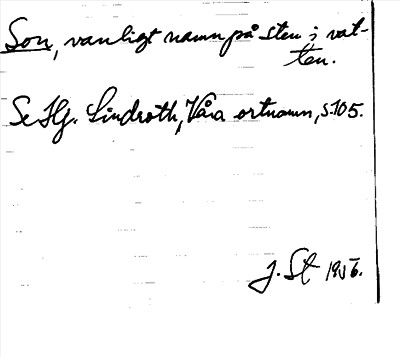 Son, vanligt namn på sten i vat-
ten.
Se Hj. Lindroth, Våra ortnamn, s. 105.
J. St 1916.